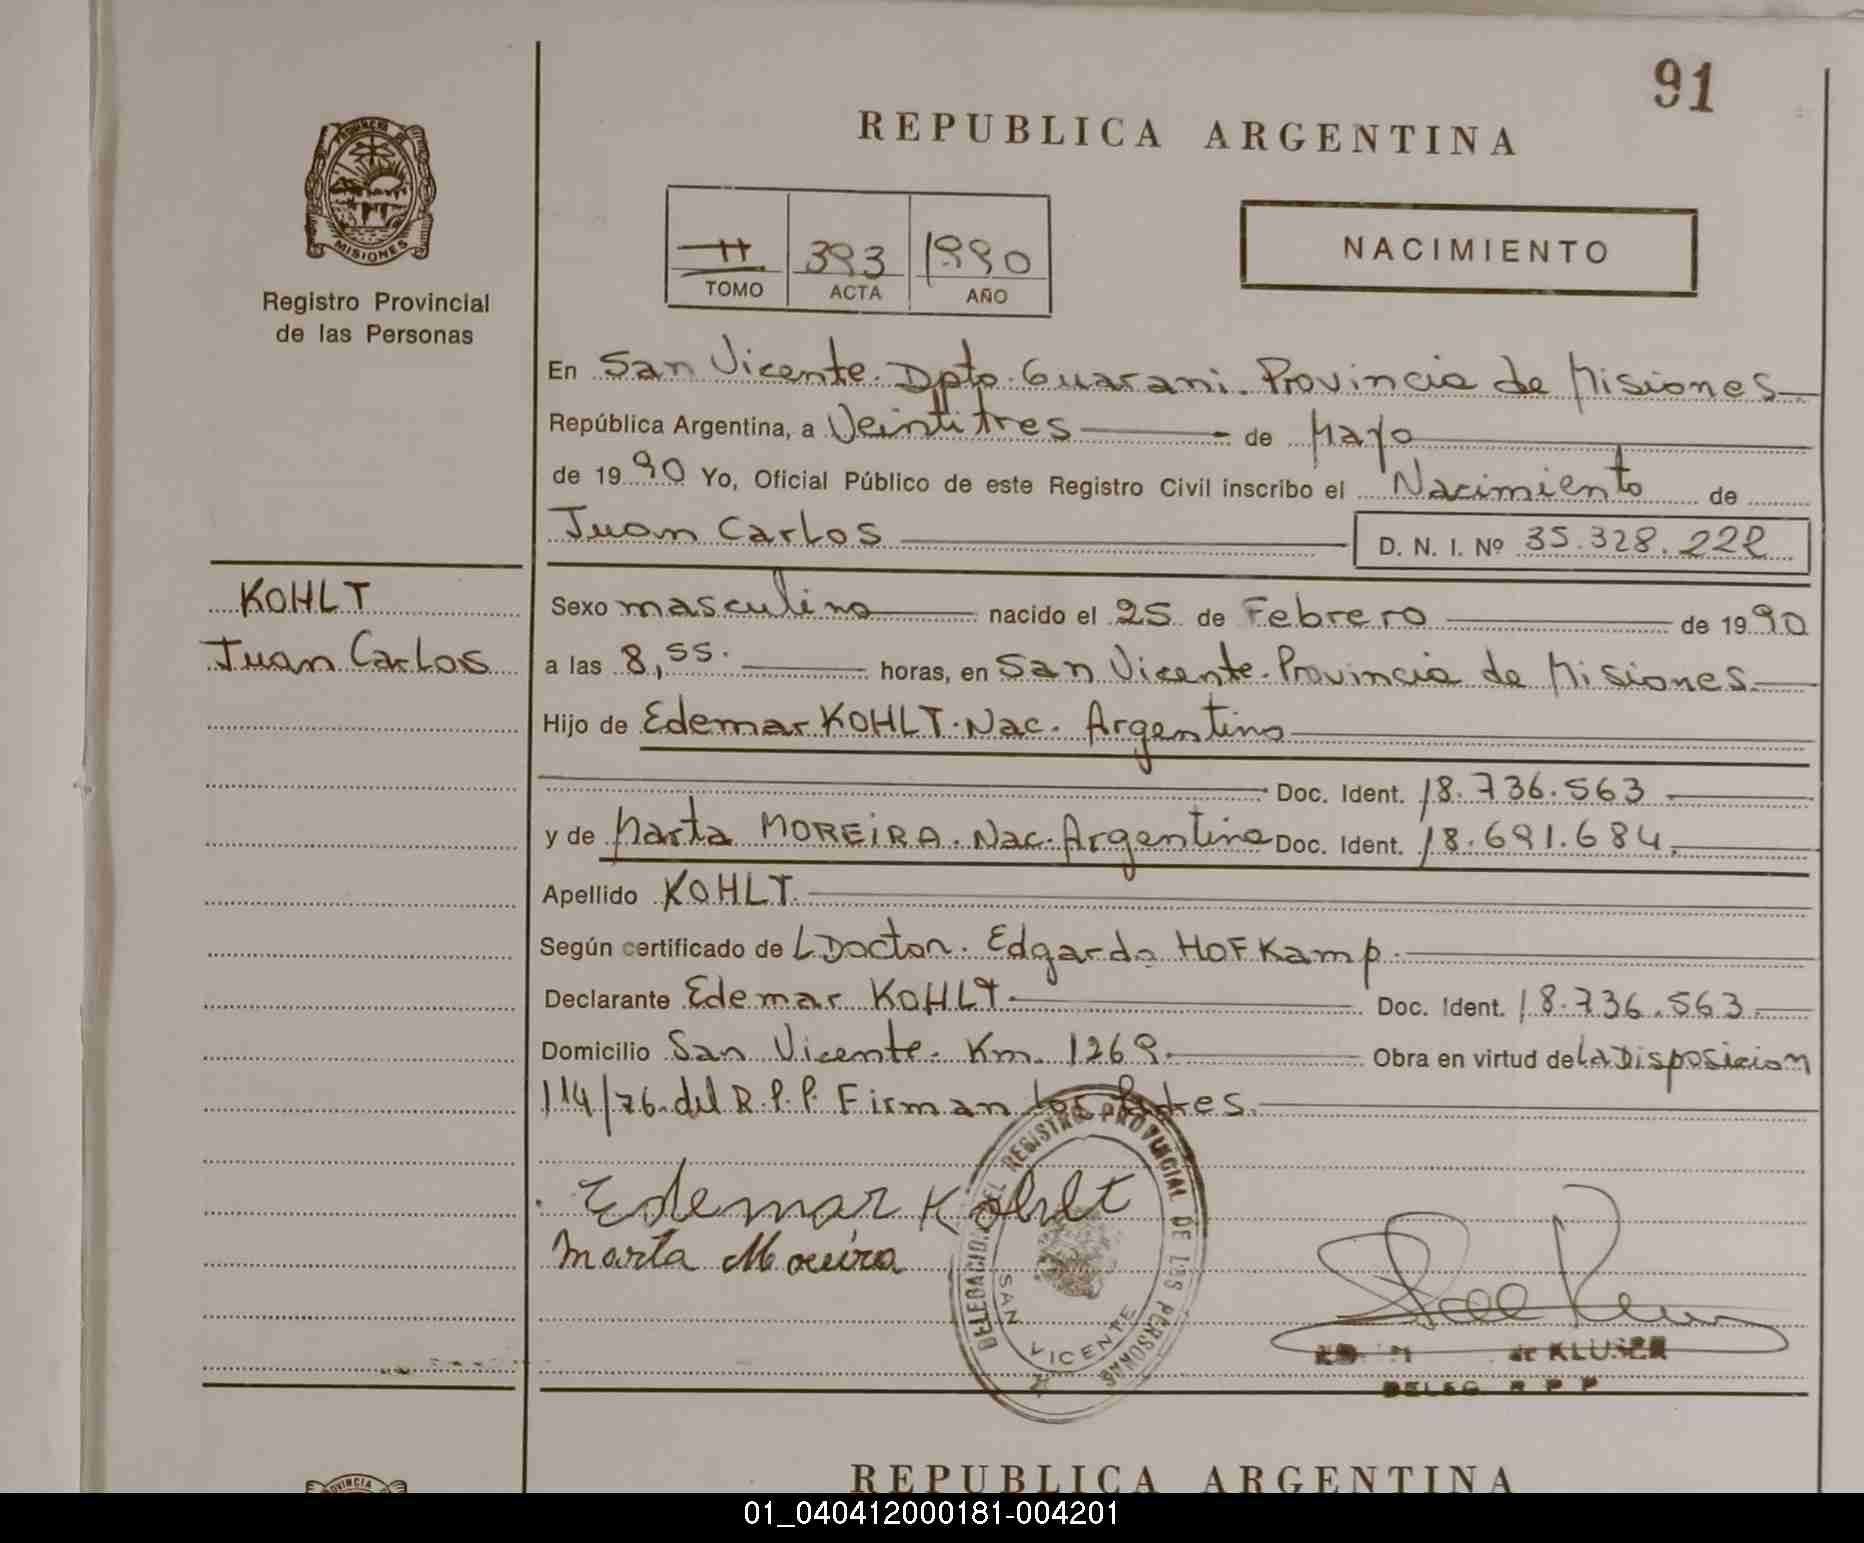 91
REPUBLICA ARGENTINA
PROVINCIA DE
MISIONES
Registro Provincial
de las Personas
II 393 1990
TOMO ACTA AÑO
NACIMIENTO
En San Vicente. Dpto. Guarani. Provincia de Misiones
República Argentina, a Veintitres de Mayo
de 1990 Yo, Oficial Público de este Registro Civil inscribo el Nacimiento de
Juan Carlos D. N. I. Nº 35.328.222
KOHLT
Juan Carlos
Sexo masculino nacido el 25 de Febrero de 1990
a las 8,55. horas, en San Vicente. Provincia de Misiones.
Hijo de Edemar KOHLT. Nac. Argentino
Doc. Ident. 18.736.563
y de Marta MOREIRA. Nac. Argentina Doc. Ident. 18.691.684.
Apellido KOHLT.
Según certificado de L Doctor. Edgardo HOFKamp.
Declarante Edemar KOHLT. Doc. Ident. 18.736.563
Domicilio San Vicente. Km. 1269. Obra en virtud de La Disposicion
114/76. del R.P.P. Firman los Padres.
Edemar Kohlt
Marta Moreira
DELEGACION DEL REGISTRO PROVINCIAL DE LAS PERSONAS
SAN VICENTE
de KLUSER
DELEG. R P P
REPUBLICA ARGENTINA
01_040412000181-004201